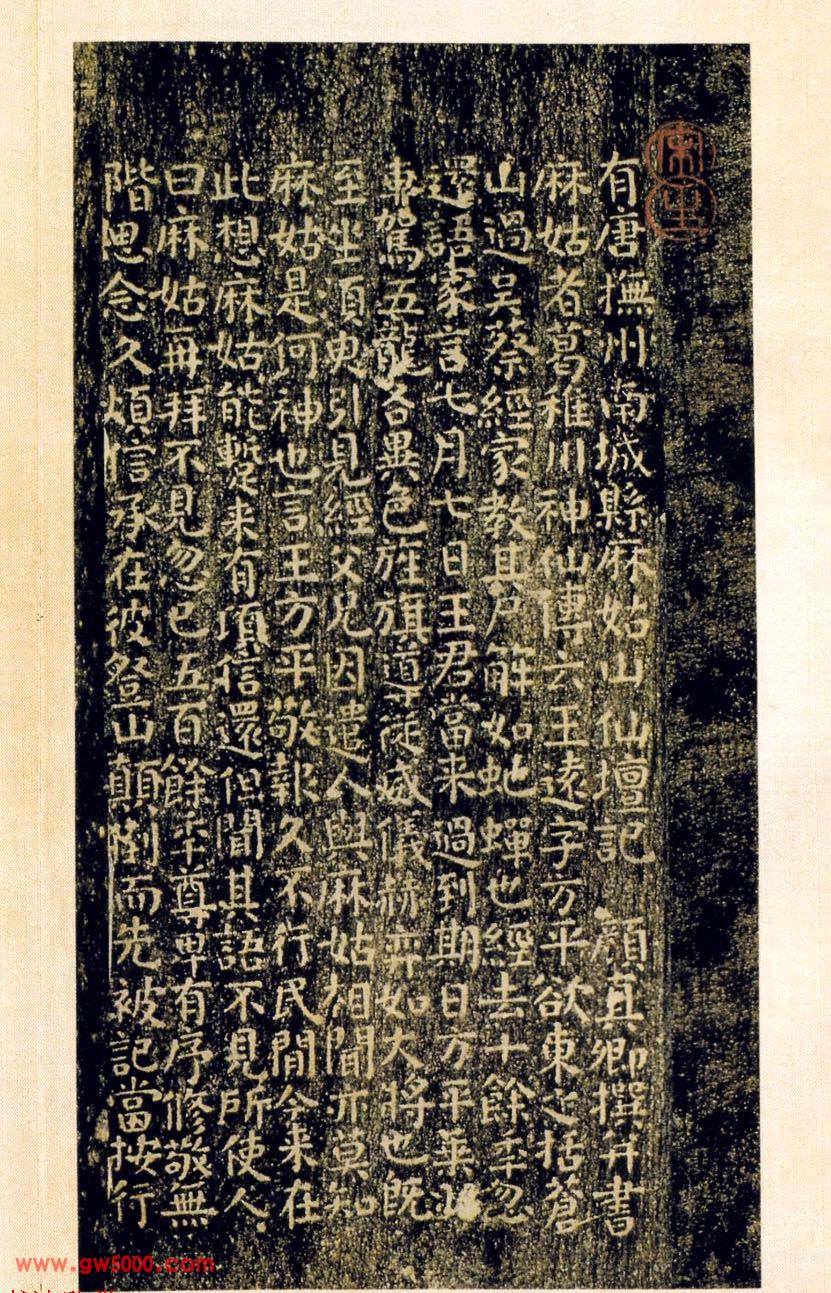 有唐撫州南城縣麻姑山仙壇記 顏真卿撰并書
麻姑者葛稚川神仙傳云王遠字方平欲東之括蒼
山過吳蔡經家教其尸解如虵蟬也經去十餘年忽
還語家言七月七日王君當来過到期日方平乘羽
車駕五龍各異色旌旗導從威儀赫弈如大將也既
至坐頂臾引見經父兄因遣人與麻姑相聞亦莫知
麻姑是何神也言王方平敬報久不行民間今来在
此想麻姑能蹔来有頃信還但聞其語不見所使人
曰麻姑再拜不見忽已五百餘年尊卑有序修敬無
階思念久煩信承在彼登山顛倒而先被記當按行
www.gw5000.com